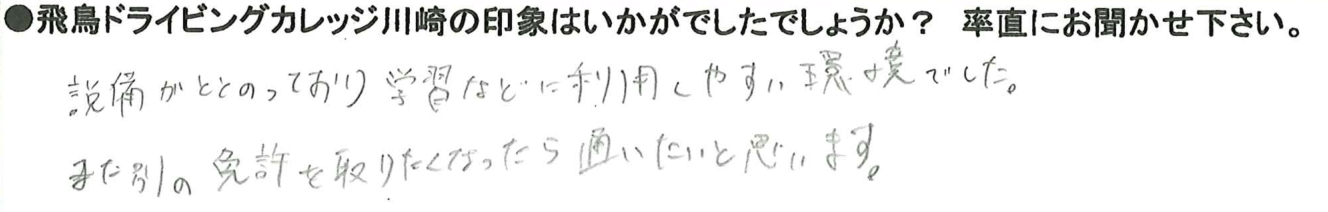 ●飛鳥ドライビングカレッジ川崎の印象はいかがでしたでしょうか？ 率直にお聞かせ下さい。
設備がととのっており学習などに利用しやすい環境でした。
また別の免許を取りたくなったら通いたいと思います。